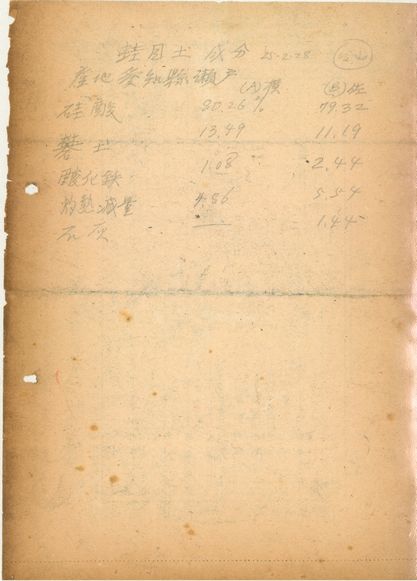 蛙目土 成分 25-2-28
産地 愛知縣瀬戸 (A) (B)
硅酸 80.26% 79.32
礬土 13.49 11.19
酸化鉄 1.08 2.44
灼熱減量 4.86 5.54
石灰 — 1.44